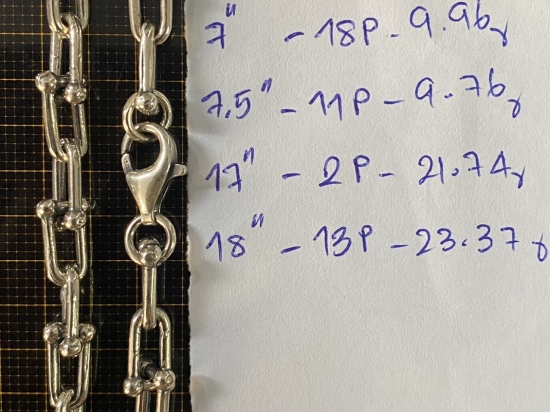 7" - 18P - 9.96g
7.5" - 11P - 9.76g
17" - 2P - 21.74g
18" - 13P - 23.37g